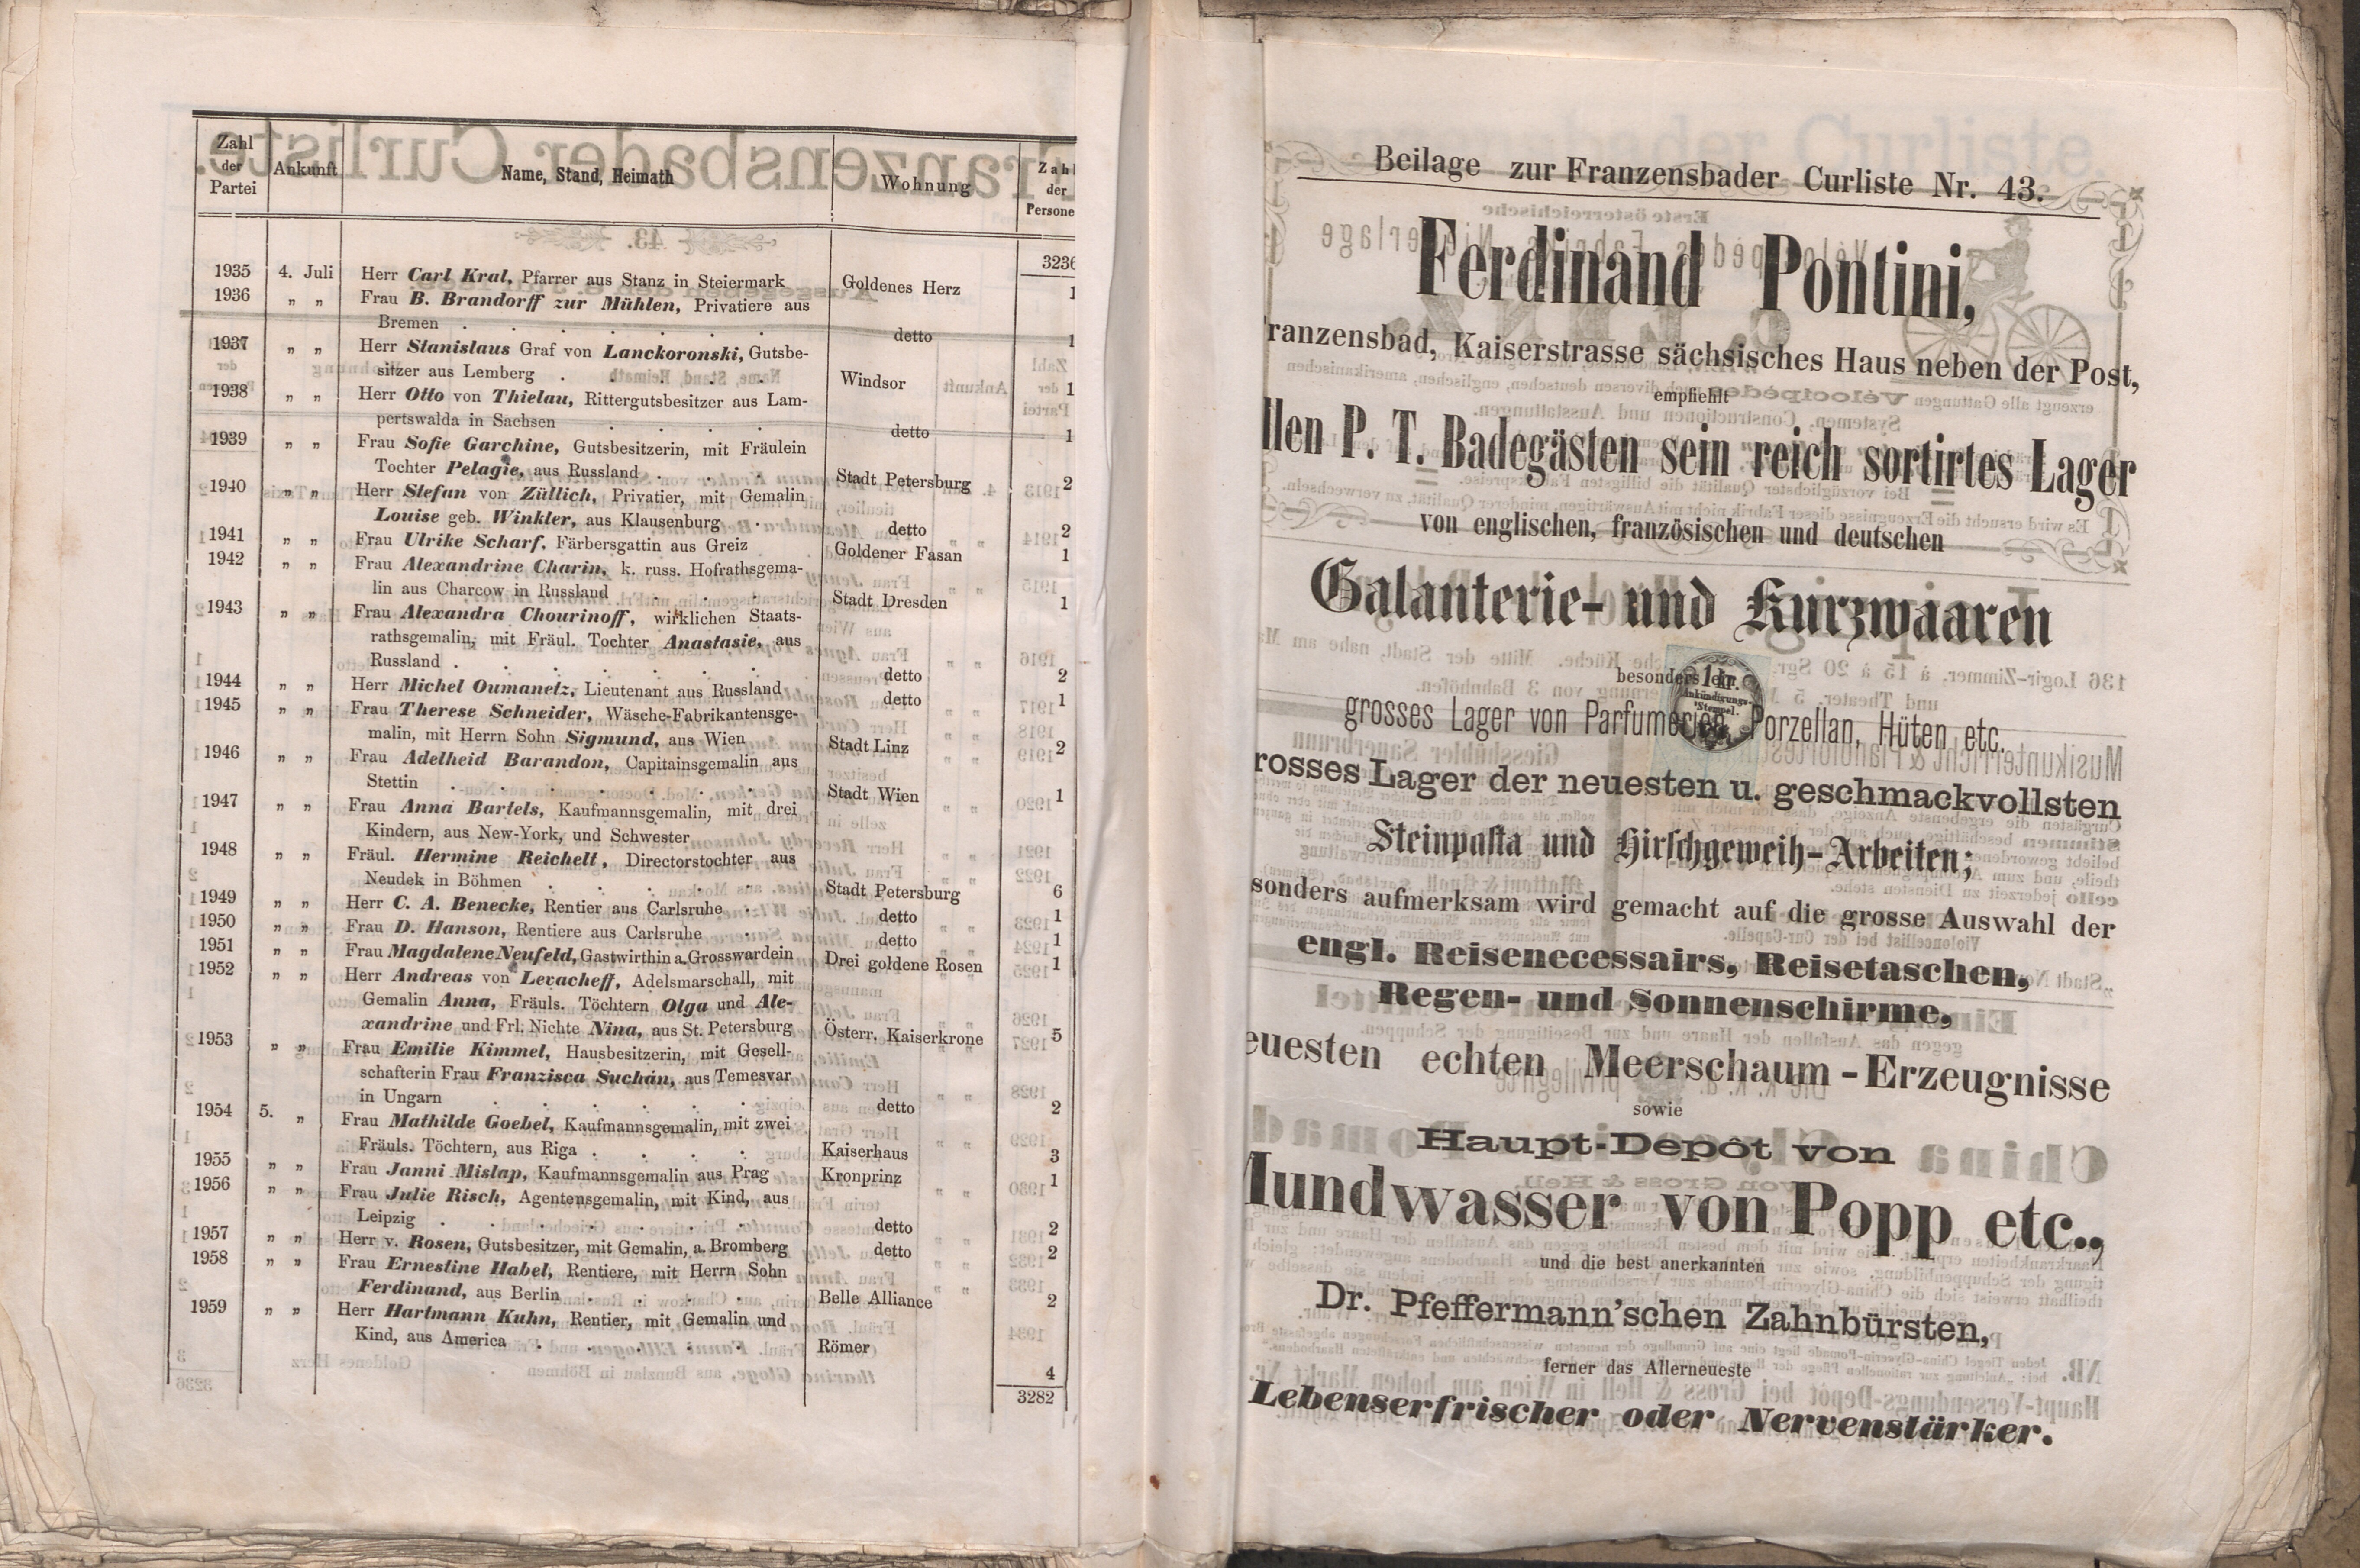 Zahl der Partei Ankunft Name, Stand, Heimath Wohnung Zahl der Persone
3236
1935 4. Juli Herr Carl Kral, Pfarrer aus Stanz in Steiermark Goldenes Herz 1
1936 „ „ Frau B. Brandorff zur Mühlen, Privatiere aus
Bremen . . . . . . . detto 1
1937 „ „ Herr Stanislaus Graf von Lanckoronski, Gutsbe-
sitzer aus Lemberg . . . . . Windsor 1
1938 „ „ Herr Otto von Thielau, Rittergutsbesitzer aus Lam-
pertswalda in Sachsen . . . . detto 1
1939 „ „ Frau Sofie Garchine, Gutsbesitzerin, mit Fräulein
Tochter Pelagie, aus Russland . . . Stadt Petersburg 2
1940 „ „ Herr Stefan von Züllich, Privatier, mit Gemalin
Louise geb. Winkler, aus Klausenburg . detto 2
1941 „ „ Frau Ulrike Scharf, Färbersgattin aus Greiz Goldener Fasan 1
1942 „ „ Frau Alexandrine Charin, k. russ. Hofrathsgema-
lin aus Charcow in Russland . . . Stadt Dresden 1
1943 „ „ Frau Alexandra Chourinoff, wirklichen Staats-
rathsgemalin, mit Fräul. Tochter Anastasie, aus
Russland . . . . . . . detto 2
1944 „ „ Herr Michel Oumanetz, Lieutenant aus Russland detto 1
1945 „ „ Frau Therese Schneider, Wäsche-Fabrikantensge-
malin, mit Herrn Sohn Sigmund, aus Wien Stadt Linz 2
1946 „ „ Frau Adelheid Barandon, Capitainsgemalin aus
Stettin . . . . . . . Stadt Wien 1
1947 „ „ Frau Anna Bartels, Kaufmannsgemalin, mit drei
Kindern, aus New-York, und Schwester
1948 „ „ Fräul. Hermine Reichelt, Directorstochter aus
Neudek in Böhmen . . . . . Stadt Petersburg 6
1949 „ „ Herr C. A. Benecke, Rentier aus Carlsruhe . detto 1
1950 „ „ Frau D. Hanson, Rentiere aus Carlsruhe . detto 1
1951 „ „ Frau Magdalene Neufeld, Gastwirthin a. Grosswardein Drei goldene Rosen 1
1952 „ „ Herr Andreas von Levacheff, Adelsmarschall, mit
Gemalin Anna, Fräuls. Töchtern Olga und Ale-
xandrine und Frl. Nichte Nina, aus St. Petersburg Österr. Kaiserkrone 5
1953 „ „ Frau Emilie Kimmel, Hausbesitzerin, mit Gesell-
schafterin Frau Franzisca Suchán, aus Temesvar
in Ungarn . . . . . . detto 2
1954 5. „ Frau Mathilde Goebel, Kaufmannsgemalin, mit zwei
Fräuls. Töchtern, aus Riga . . . . Kaiserhaus 3
1955 „ „ Frau Janni Mislap, Kaufmannsgemalin aus Prag Kronprinz 1
1956 „ „ Frau Julie Risch, Agentensgemalin, mit Kind, aus
Leipzig . . . . . . . detto 2
1957 „ „ Herr v. Rosen, Gutsbesitzer, mit Gemalin, a. Bromberg detto 2
1958 „ „ Frau Ernestine Habel, Rentiere, mit Herrn Sohn
Ferdinand, aus Berlin . . . . Belle Alliance 2
1959 „ „ Herr Hartmann Kuhn, Rentier, mit Gemalin und
Kind, aus America . . . . . Römer 4
3282
Beilage zur Franzensbader Curliste Nr. 43.
Ferdinand Pontini,
ranzensbad, Kaiserstrasse sächsisches Haus neben der Post,
empfiehlt
llen P. T. Badegästen sein reich sortirtes Lager
von englischen, französischen und deutschen
Galanterie- und Kurzwaaren
besonders ein
1 kr. Ankündigungs-Stempel.
grosses Lager von Parfumerien Porzellan, Hüten etc.
rosses Lager der neuesten u. geschmackvollsten
Steinpasta und Hirschgeweih-Arbeiten;
sonders aufmerksam wird gemacht auf die grosse Auswahl der
engl. Reisenecessairs, Reisetaschen,
Regen- und Sonnenschirme,
euesten echten Meerschaum-Erzeugnisse
sowie
Haupt-Depôt von
Mundwasser von Popp etc.,
und die best anerkannten
Dr. Pfeffermann'schen Zahnbürsten,
ferner das Allerneueste
Lebenserfrischer oder Nervenstärker.